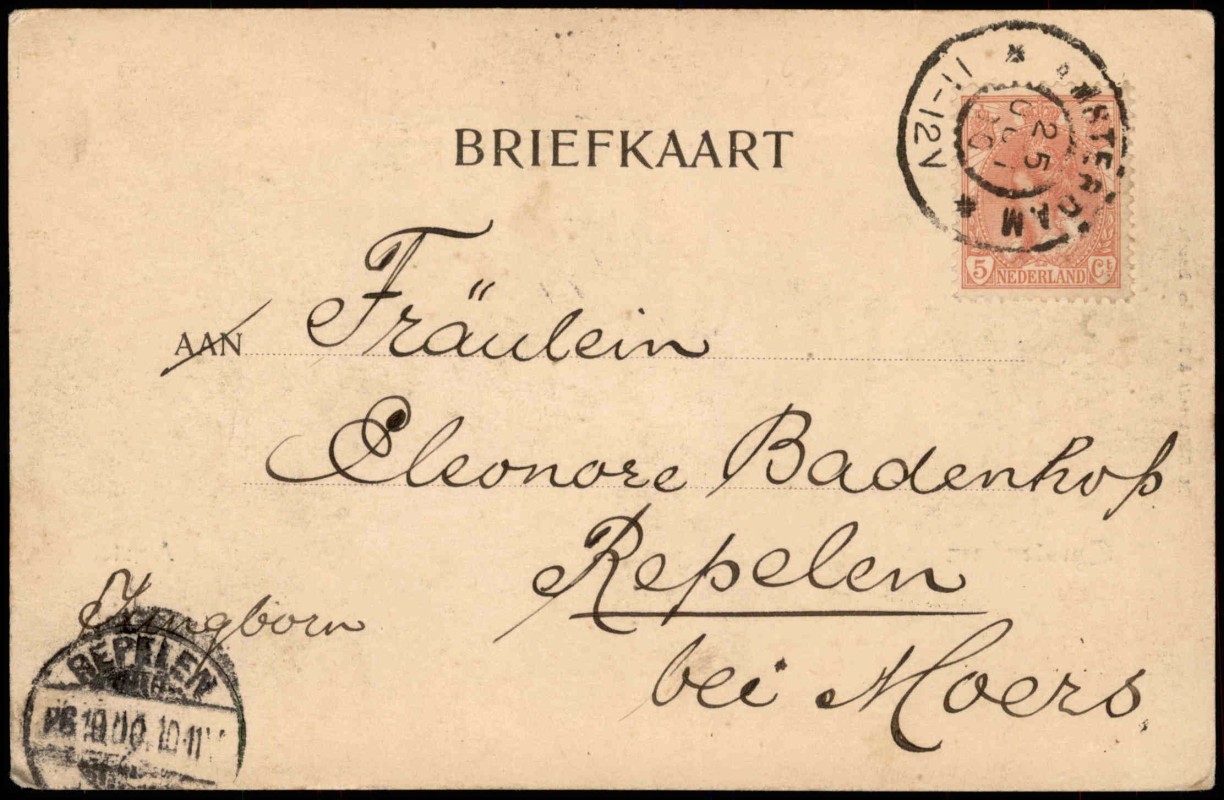 BRIEFKAART
AMSTERDAM
11-12V
25
OCT
00
5 NEDERLAND Ct
AAN Fräulein
Eleonore Badenhop
Repelen
Jungborn
bei Moers
REPELEN
26 10.00. 10-11V